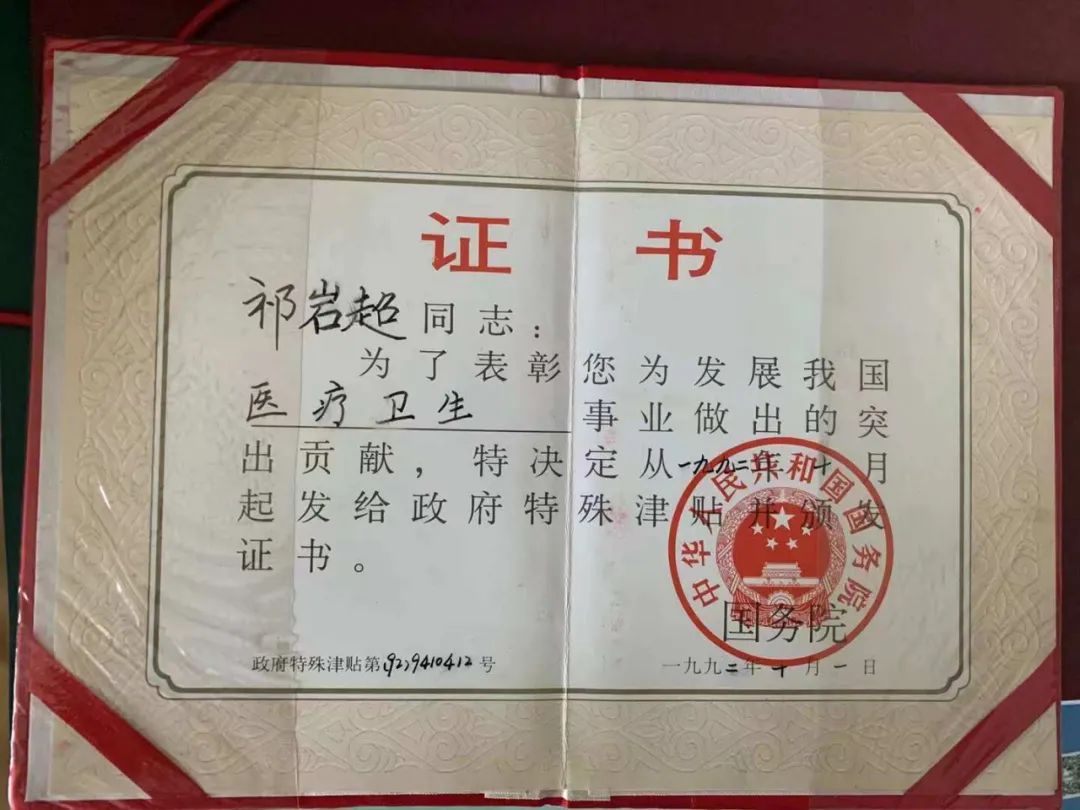 证 书
祁岩超同志：
为了表彰您为发展我国
医疗卫生事业做出的突
出贡献，特决定从一九九二年十月
起发给政府特殊津贴并颁发
证书。
中华人民共和国国务院
国务院
政府特殊津贴第(92)9410412号
一九九二年十月一日